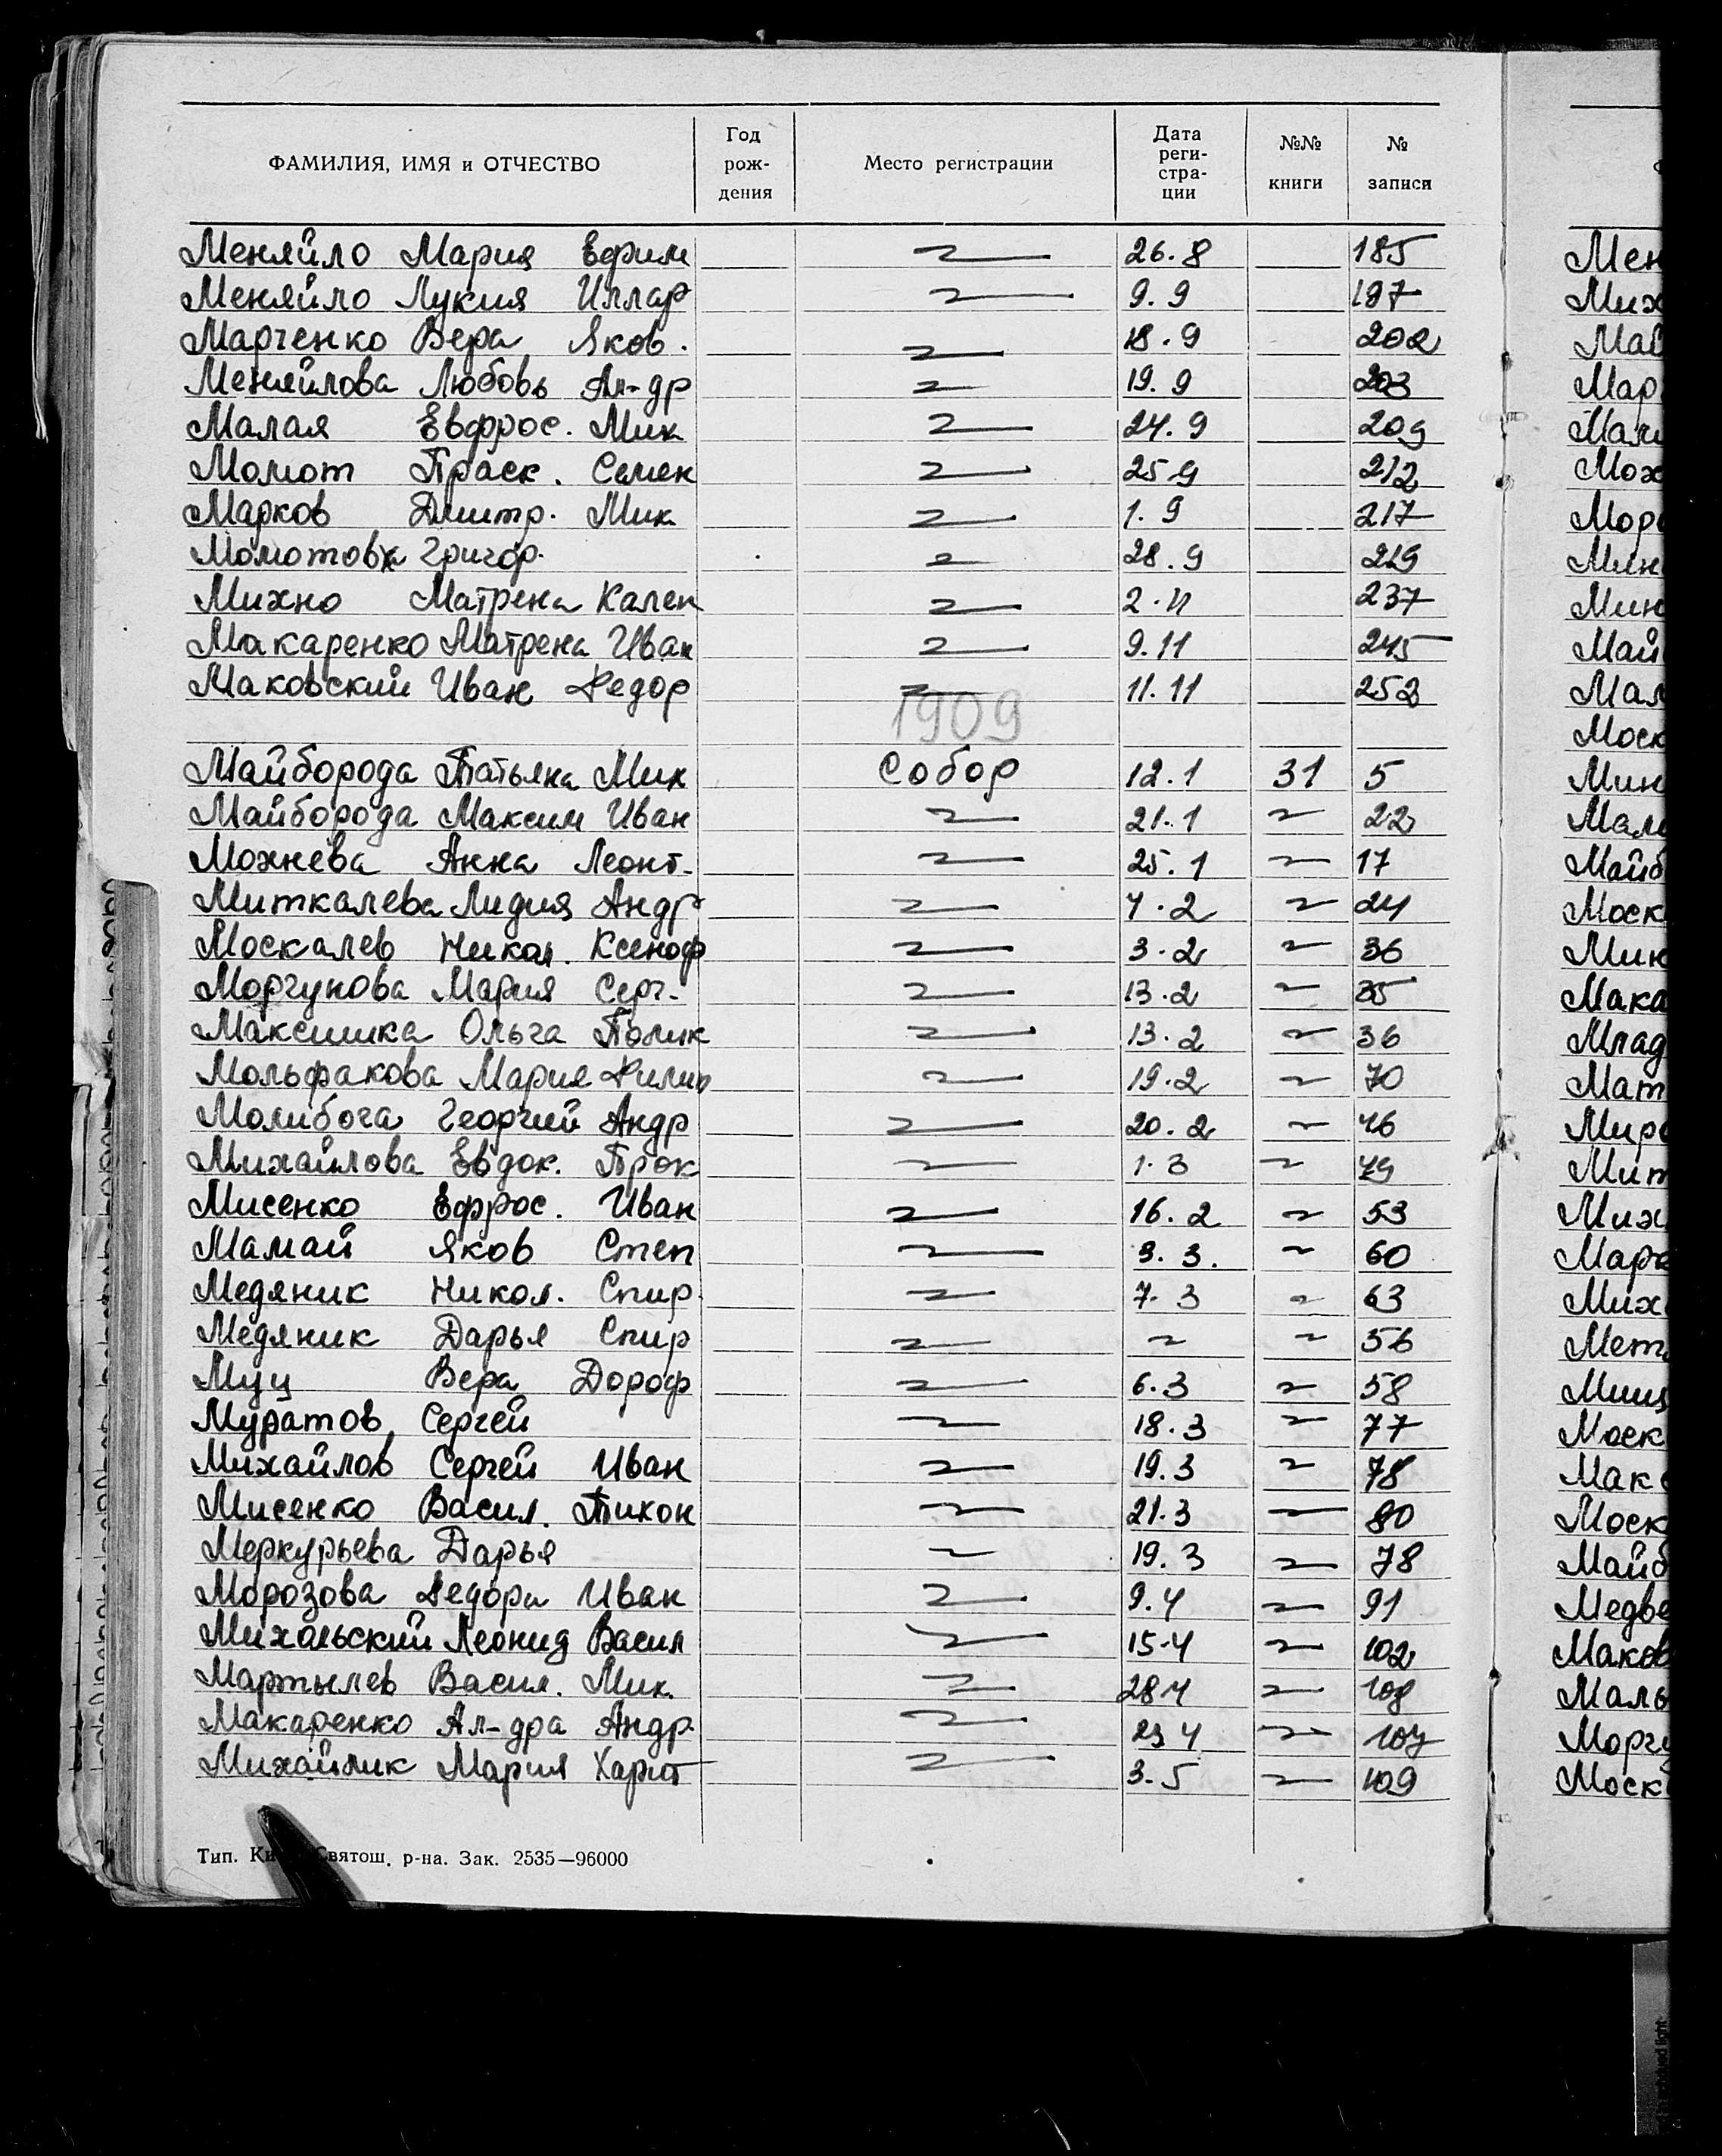 ФАМИЛИЯ, ИМЯ и ОТЧЕСТВО Год рож-дения Место регистрации Дата реги-стра-ции №№ книги № записи
Меняйло Мария Ефим 26.8 185
Меняйло Лукия Иллар 9.9 197
Марченко Вера Яков. 18.9 202
Меняйлова Любовь Ал-др 19.9 203
Малая Евфрос. Мик 24.9 209
Момот Праск. Семен 25 9 212
Марков Дмитр. Мик 1.9 217
Момотова Григор. 28.9 219
Михно Матрена Кален 2.11 237
Макаренко Матрена Иван 9.11 245
Маковский Иван Федор 11.11 252
1909
Майборода Татьяна Мик Собор 12.1 31 5
Майборода Максим Иван 21.1 22
Мохнева Анна Леонт. 25.1 17
Миткалева Лидия Андр 7.2 24
Москалев Никол. Ксеноф 3.2 36
Моргунова Мария Серг. 13.2 35
Максимка Ольга Полик 13.2 36
Мольфакова Мария Филип 19.2 70
Молибога Георгий Андр 20.2 46
Михайлова Евдок. Прок 1.3 79
Мисенко Ефрос. Иван 16.2 53
Мамай Яков Степ 3.3. 60
Медяник Никол. Спир. 7.3 63
Медяник Дарья Спир 56
Муц Вера Дороф 6.3 58
Муратов Сергей 18.3 77
Михайлов Сергей Иван 19.3 78
Мисенко Васил. Тихон 21.3 80
Меркурьева Дарья 19.3 78
Морозова Федора Иван 9.4 91
Михальский Леонид Васил 15.4 102
Мартылев Васил. Мик. 28 4 108
Макаренко Ал-дра Андр. 23 4 107
Михайлик Мария Харит 3.5 109
Тип. Ки Святош. р-на. Зак. 2535—96000